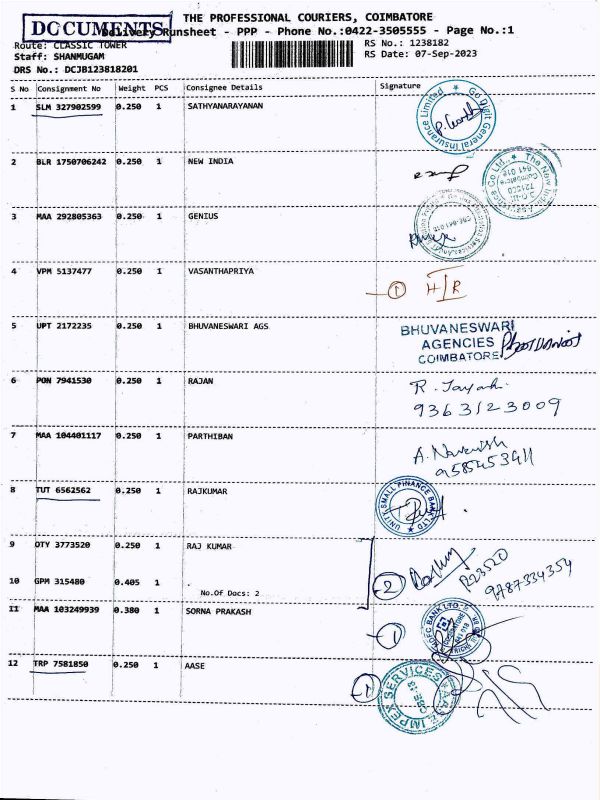 DOCUMENTS
THE PROFESSIONAL COURIERS, COIMBATORE
Delivery Runsheet - PPP - Phone No.:0422-3505555 - Page No.:1
Route: CLASSIC TOWER
RS No.: 1238182
Staff: SHANMUGAM
RS Date: 07-Sep-2023
DRS No.: DCJB123818201
S No Consignment No Weight PCS Consignee Details Signature
1 SLM 327902599 0.250 1 SATHYANARAYANAN
Go Digit General Insurance Limited
2 BLR 1750706242 0.250 1 NEW INDIA
The New India Assurance Co Ltd.,
Coimbatore
641 018
3 MAA 292805363 0.250 1 GENIUS
CBE-641 018
4 VPM 5137477 0.250 1 VASANTHAPRIYA
1 H/R
5 UPT 2172235 0.250 1 BHUVANESWARI AGS
BHUVANESWARI
AGENCIES
COIMBATORE
6 PON 7941530 0.250 1 RAJAN
9363123009
7 MAA 104401117 0.250 1 PARTHIBAN
8 TUT 6562562 0.250 1 RAJKUMAR
UNITY SMALL FINANCE BANK LTD
9 OTY 3773520 0.250 1 RAJ KUMAR
2
P23520
9787334354
10 GPM 315480 0.405 1 .
No.Of Docs: 2
11 MAA 103249939 0.380 1 SORNA PRAKASH
1
HDFC BANK LTD
12 TRP 7581850 0.250 1 AASE
1
AARSE IMPEX SERVICES
CBE-18